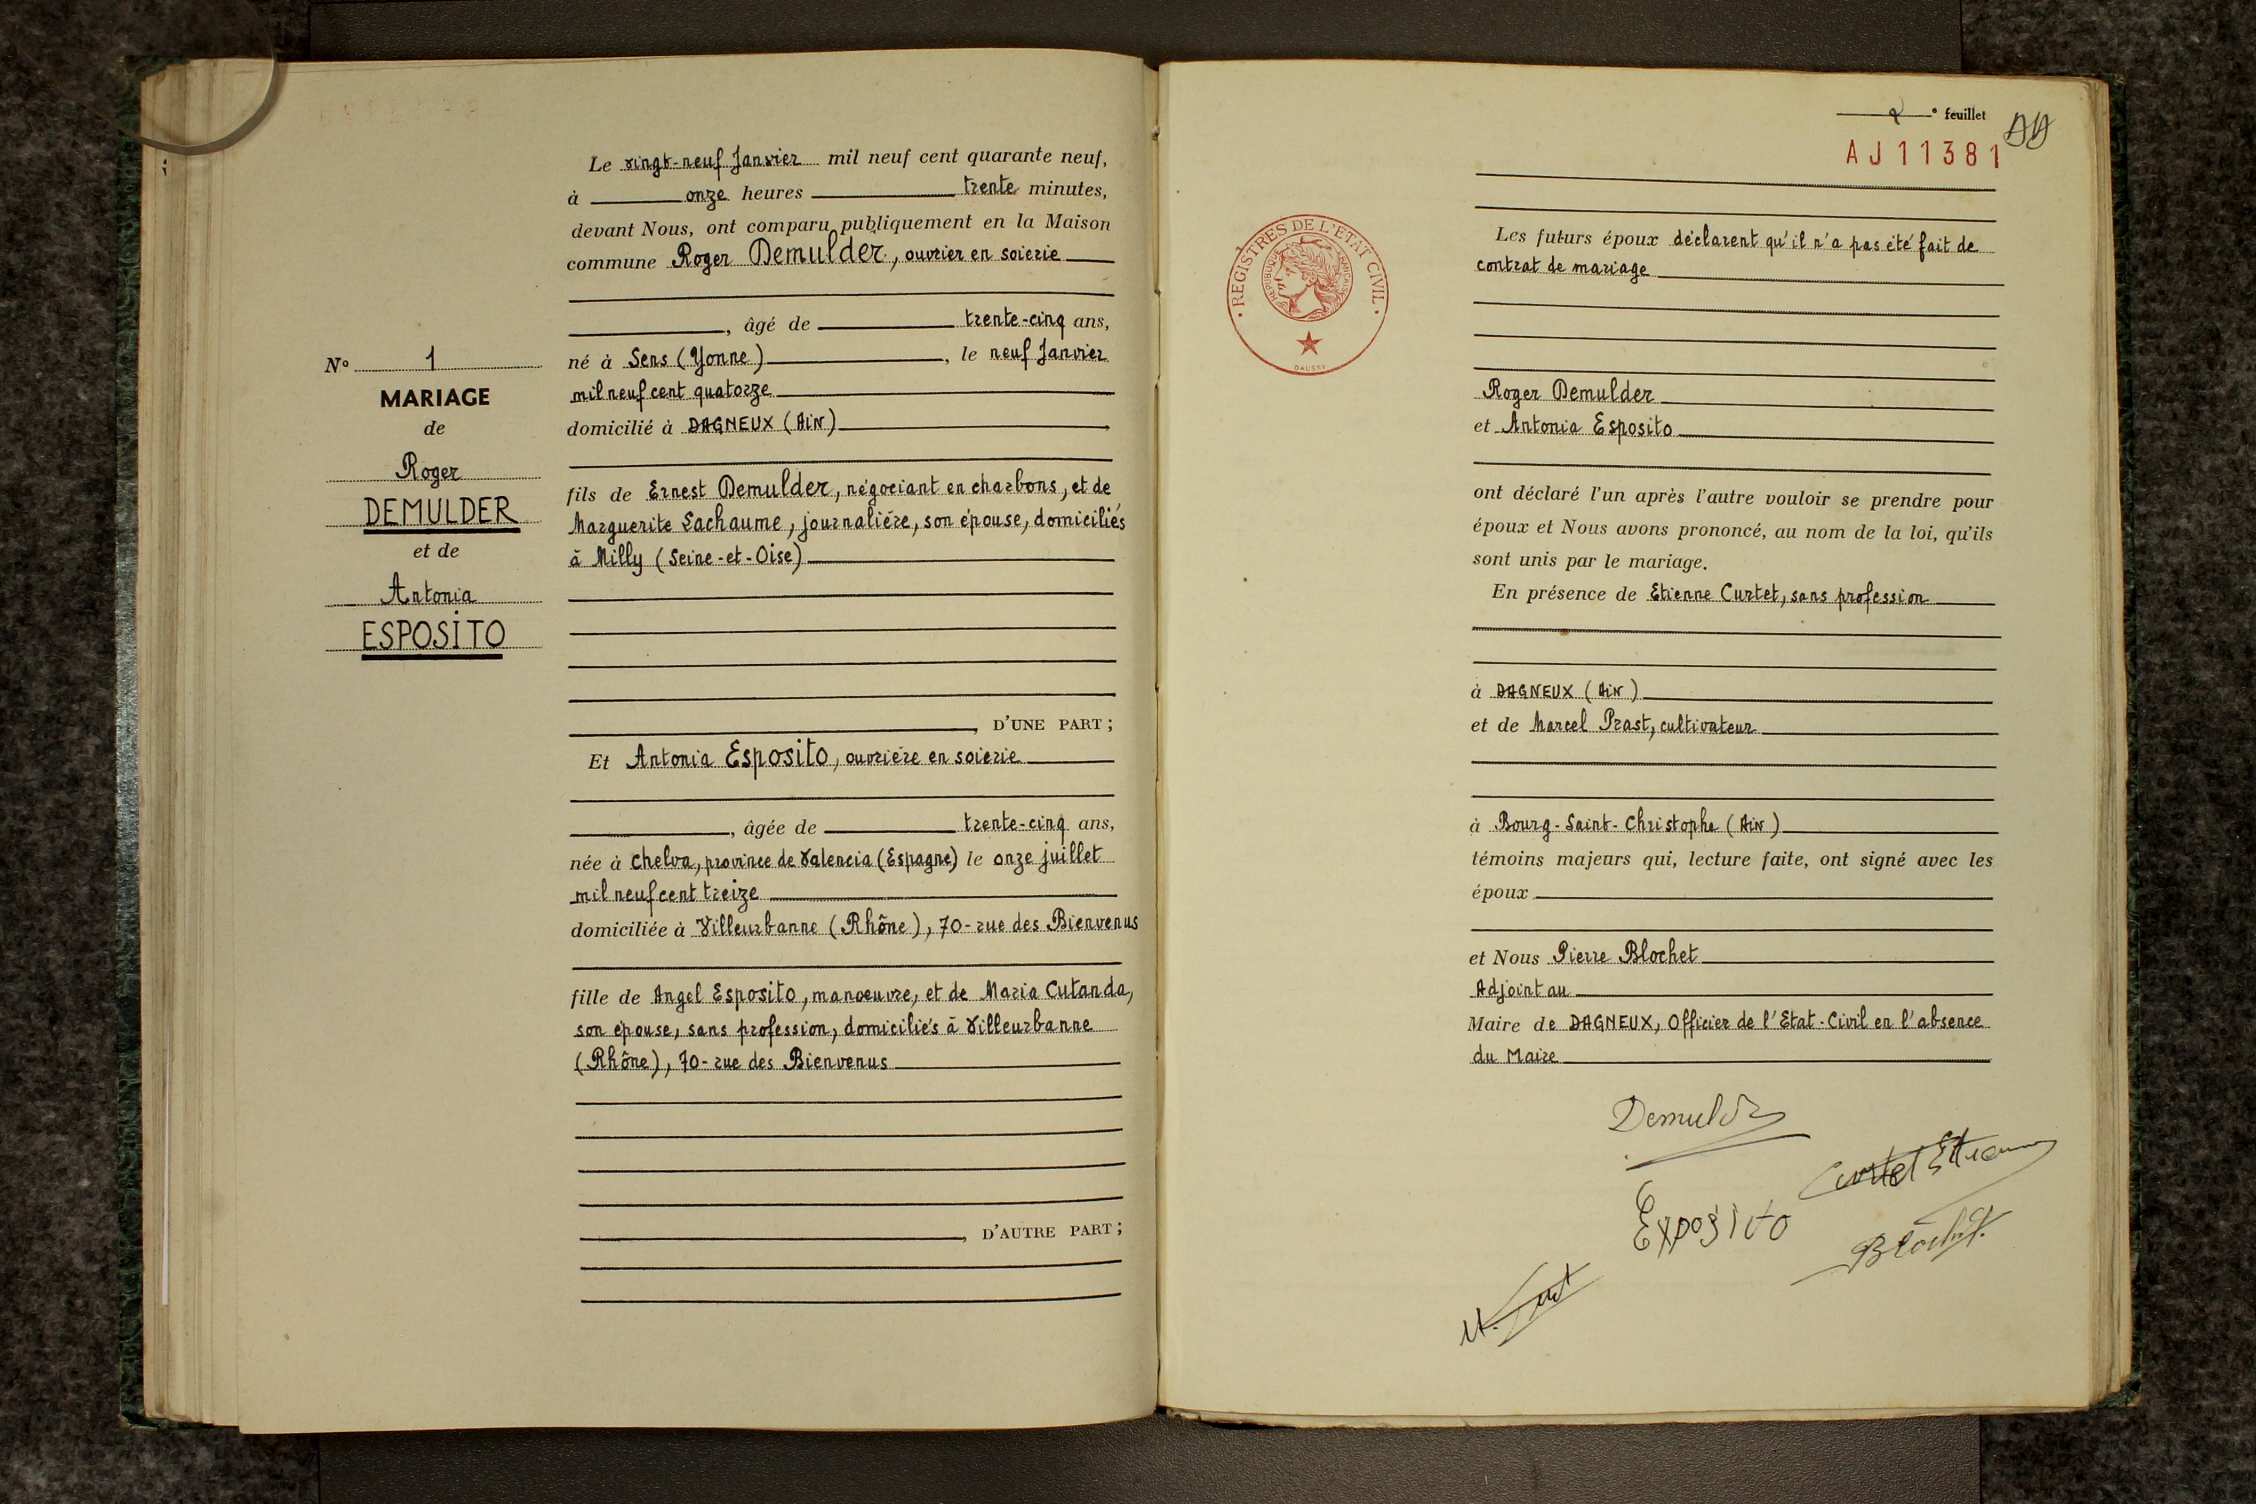 Le vingt-neuf Janvier mil neuf cent quarante neuf,
à onze heures trente minutes,
devant Nous, ont comparu publiquement en la Maison
commune Roger Demulder, ouvrier en soierie
, âgé de trente-cinq ans,
né à Sens (Yonne), le neuf Janvier
mil neuf cent quatorze
domicilié à DAGNEUX (Ain)
fils de Ernest Demulder, négociant en charbons, et de
Marguerite Lachaume, journalière, son épouse, domiciliés
à Milly (Seine-et-Oise)
D'UNE PART ;
Et Antonia Esposito, ouvrière en soierie
, âgée de trente-cinq ans,
née à Chelva, province de Valencia (Espagne) le onze juillet
mil neuf cent treize
domiciliée à Villeurbanne (Rhône), 70-rue des Bienvenus
fille de Angel Esposito, manoeuvre, et de Maria Cutanda,
son épouse, sans profession, domiciliés à Villeurbanne
(Rhône), 70-rue des Bienvenus
, D'AUTRE PART ;
N° 1
MARIAGE
de
Roger
DEMULDER
et de
Antonia
ESPOSITO
2 e feuillet
AJ11381
REGISTRES DE L'ETAT CIVIL
Les futurs époux déclarent qu'il n'a pas été fait de
contrat de mariage
Roger Demulder
et Antonia Esposito
ont déclaré l'un après l'autre vouloir se prendre pour
époux et Nous avons prononcé, au nom de la loi, qu'ils
sont unis par le mariage.
En présence de Etienne Curtet, sans profession
à DAGNEUX (Ain)
et de Marcel Prast, cultivateur
à Bourg-Saint-Christophe (Ain)
témoins majeurs qui, lecture faite, ont signé avec les
époux
et Nous Pierre Blochet
Adjoint au
Maire de DAGNEUX, Officier de l'Etat-Civil en l'absence
du Maire
Demulder
Curtet Etienne
Exposito
Blochet